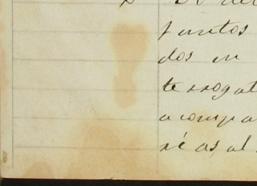 juntos
dos in
te rogat
acompa
ré as al